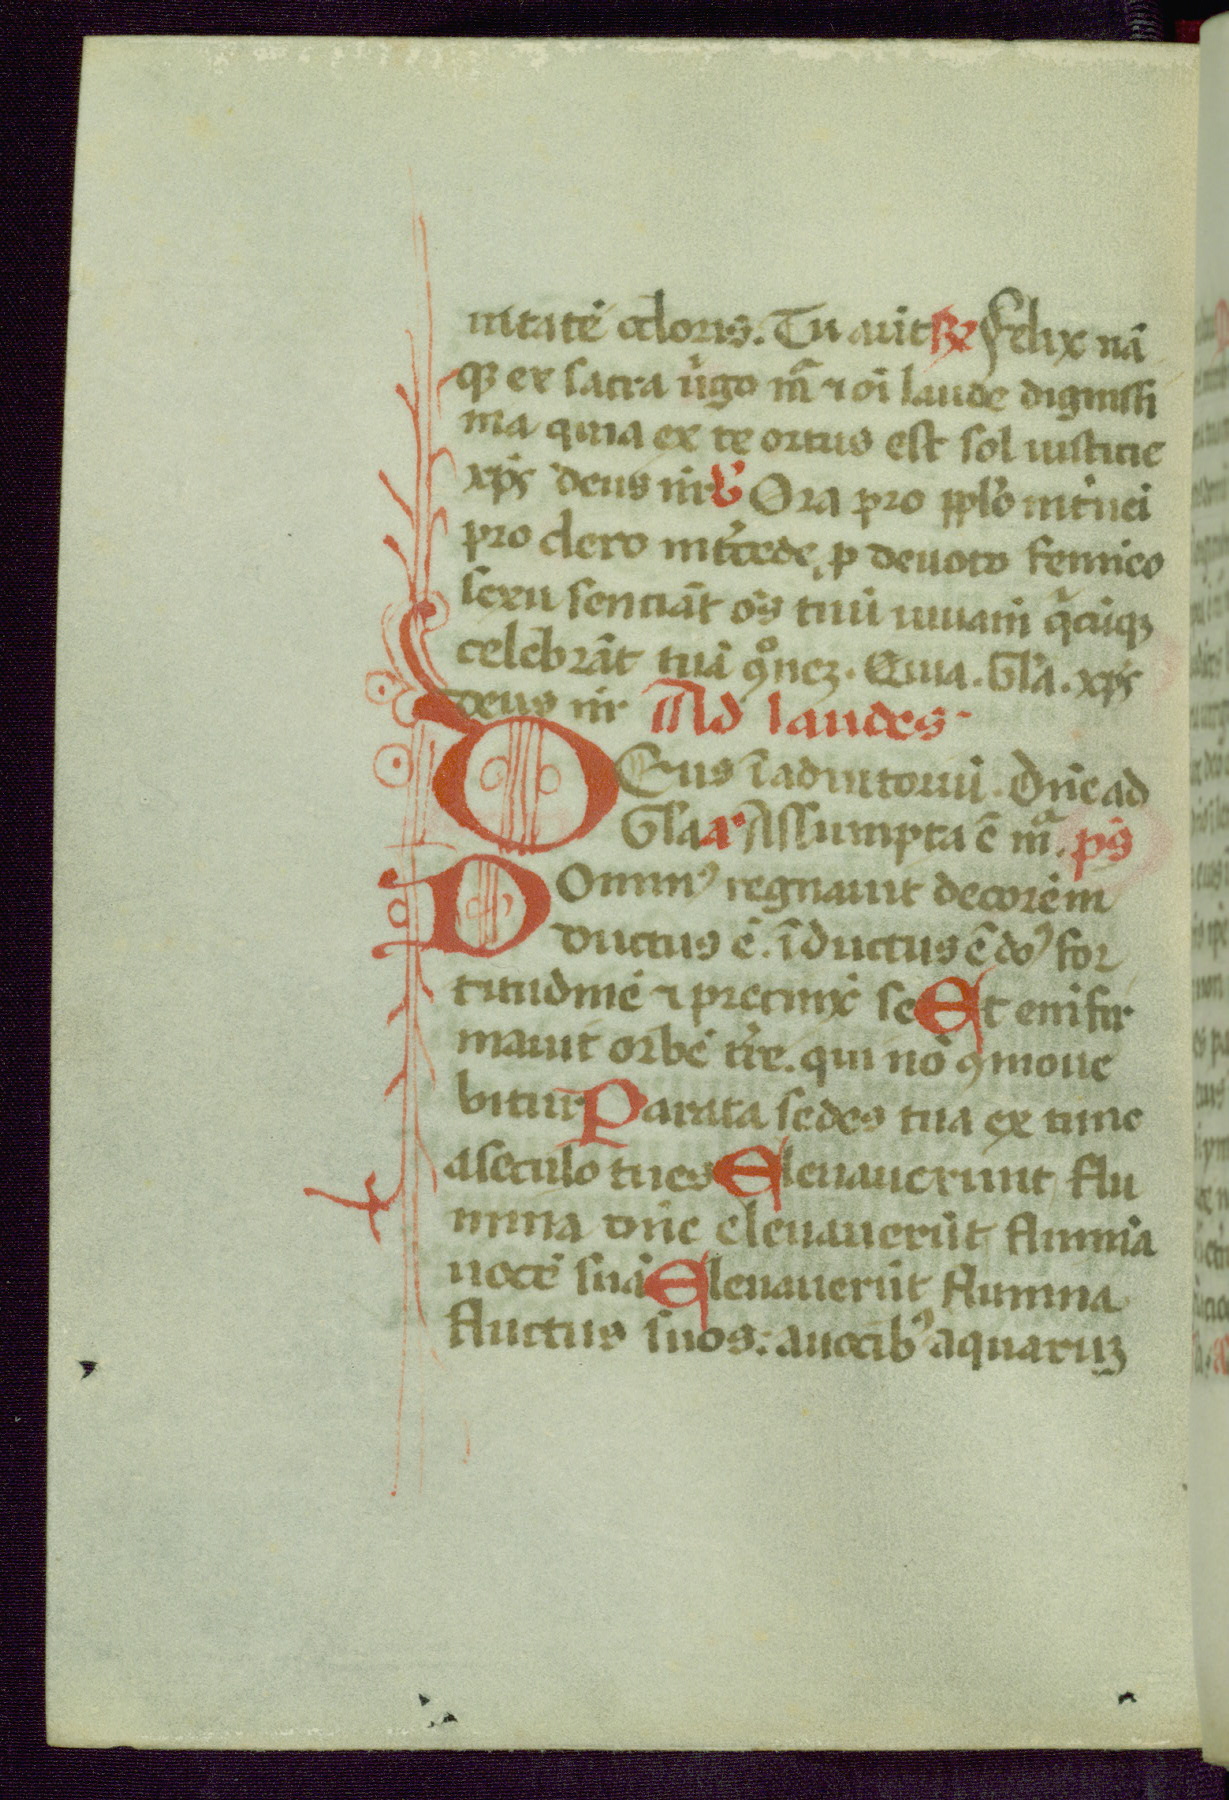 nitatē odoris. Tu aūt R̃ Felix nā
q3 es sacra ṽgo mͣ ⁊ oī laude dignissi
ma quia ex te ortus est sol iusticie
xp̄s deus nr̄ V Ora pro pplo intͥuei
pro clero int̾cede, p deuoto femineo
sexu senciāt oēs tuū iuuam̄ qͥcūq3
celebrāt tuā ꝯnez. Quia. Gl̄a. xp̄s
deus nr̄ Ad laudes.
DEus ī adiutoriū. Dn̄e ad
Gl̄a a͂ Assumpta ē mͣ. ps̄
Domin⁹ regnauit decorē in
ductus ē. īductus ē do⁹ for
titudinē ⁊ precinx̄ se Et enī fir
mauit orbē tr̄re. qui nō ꝯmoue
bitur Parata sedes tua ex tunc
a seculo tu es Eleuauerunt flu
mina dn̄e eleuauerūt flumīa
uocē suā Eleuauerūt flumina
fluctus suos: a uocib⁹ aquaru3